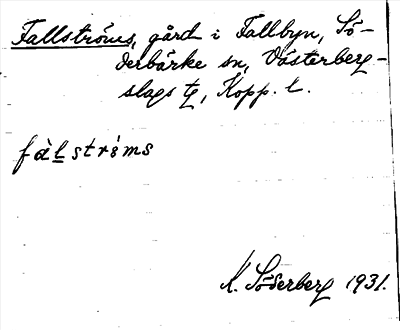 Fallströms, gård i Fallbyn, Sö-
derbärke sn, Västerberg-
slags tg, Kopp. l.
fàlströ̀ms
K. Söderberg 1931.